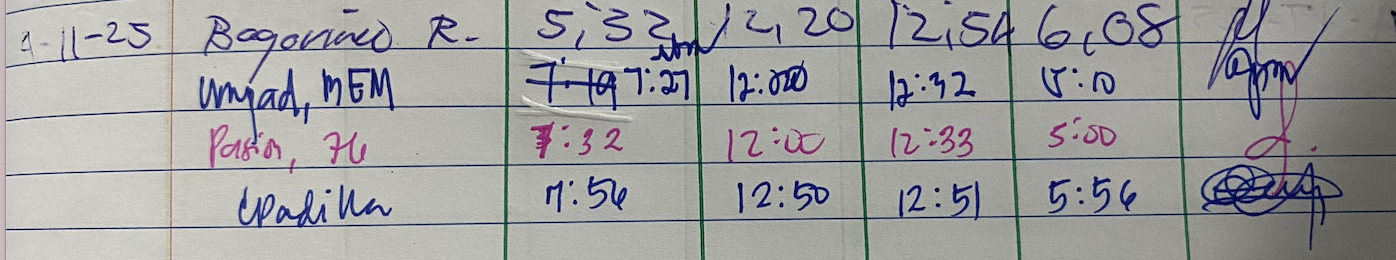 9-11-25 Bagorinao R. 5:32 12:20 12:54 6:08
Umjad, MEM 7:19 7:27 12:00 12:32 5:10
Pasion, 7:32 12:00 12:33 5:00
CPadilla 7:56 12:50 12:51 5:56